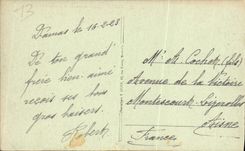 13
Damas le 16-2-28
De ton grand
frère bien aimé
reçois ses bons
gros baisers.
Robert
Mr A. Cochet (fils)
Avenue de la Victoire
Montescourt-Lizerolles
Aisne
France